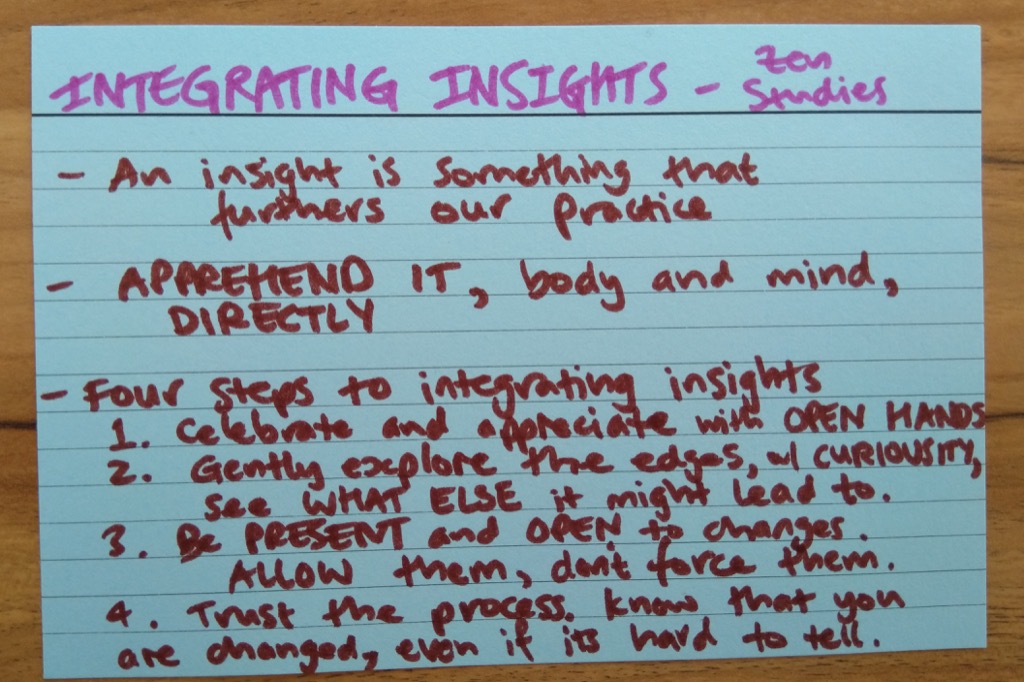 INTEGRATING INSIGHTS - Zen Studies
- An insight is something that
furthers our practice
- APPREHEND IT, body and mind,
DIRECTLY
- Four steps to integrating insights
1. Celebrate and appreciate with OPEN HANDS
2. Gently explore the edges, w/ CURIOUSITY,
see WHAT ELSE it might lead to.
3. Be PRESENT and OPEN to changes.
ALLOW them, don't force them.
4. Trust the process. Know that you
are changed, even if its hard to tell.